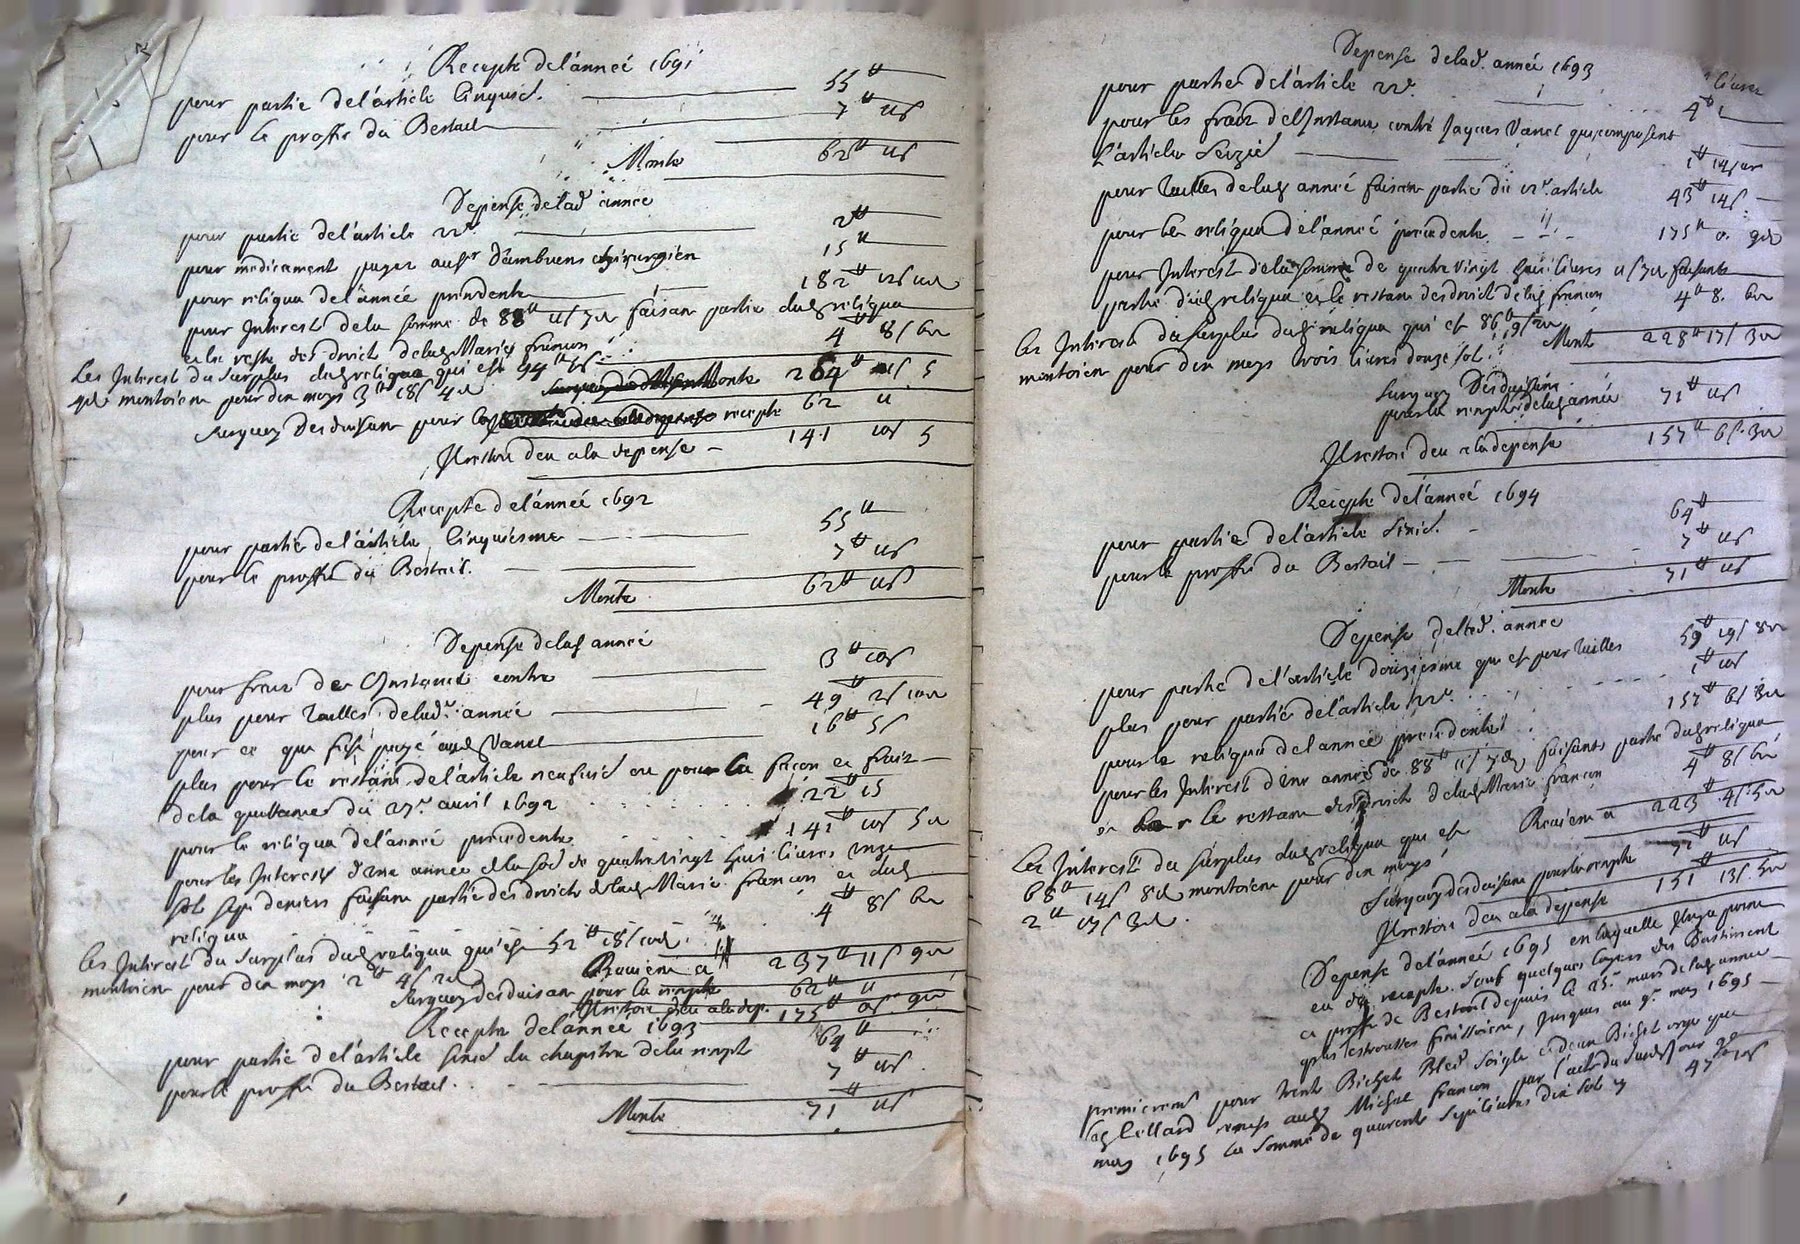 Recepte de l'année 1691
pour partie de l'article Cinquie͞. 55 ₶
pour le proffit du Bestail 7 ₶ us
Monte 62 ₶ us
Depense de lad. année
pour partie de l'article 22e. 2 ₶
pour medicament payez au sr Dambrens chirurgien 15 ₶
pour reliqua de l'année precedente 182 ₶
pour Interest de la somme de 88 ₶ us 7d faisant partie dud reliqua
et le reste des droits de lad Marie françon 4 ₶ 8s 6d
Les Interest du surplus dud reliqua qui est 94 ₶
qui montoient pour dix moys 3 ₶ 18s 4d Monte 264 ₶ 5
Surquoy desduisant pour la recepte 62 u
Il restoit deu a la depense 141 5
Recepte de l'année 1692
pour partie de l'article Cinquiesme 55 ₶
pour le proffit du Bestail. 7 ₶ us
Monte 62 ₶ us
Depense de lad année
pour fraix de l'Instance contre 3 ₶ 10s
plus pour Tailles de lad. année 49 ₶ 2s 10d
pour ce qui fust payé aud Vanel 16 ₶ 5s
plus pour le restant de l'article neufvie͞ ou pour la façon et fraix
de la quittance du 27e. avril 1692 22 ₶ 15
pour le reliqua de l'année precedente 141 ₶ 10s 5d
pour les Interest d'une année de la so͞e de quatre vingt huit livres unze
sols sept deniers faisant partie des droits de lad Marie françon et dud
reliqua 4 ₶ 8s 6d
Les Interest du surplus dud reliqua qui est 52 ₶ 18s 10d
montoient pour dix moys 2 ₶ 4s 2d Revient a 237 ₶ 11s 9d
Surquoy desduisant pour la recepte 62 ₶ u
Il restoit deu a la dep. 175 ₶ 0s 9d
Recepte de l'année 1693
pour partie de l'article sixie͞ du chapitre de la recepte 64 ₶
pour le proffit du Bestail. 7 ₶ us
Monte 71 ₶ us
Depense de lad. année 1693
pour partie de l'article 22e. 4 ₶
pour les fraix de l'Instance contre Jaques Vanel qui composent
l'article seizie͞ 1 ₶
pour Tailles de lad année faisant partie du 12e article 43 ₶ 14s
pour le reliqua de l'année precedente 175 ₶ 0. 9d
pour Interest de la somme de quatre vingt huit livres us 7d faisants
partie dud reliqua et le restant des droits de lad françon 4 ₶ 8. 6d
les Interest du surplus dud reliqua qui est 86 ₶ 9s 2d Monte 228 ₶ 17s 3d
montoient pour dix moys trois livres douze sols
Surquoy Desduisant
pour la recepte de lad année 71 ₶ us
Il restoit deu a la depense 157 ₶ 6s. 3d
Recepte de l'année 1694
pour partie de l'article sixie͞. 64 ₶
pour le proffit du Bestail 7 ₶ us
Monte 71 ₶ us
Depense de lad. année
pour partie de l'article douziesme qui est pour Tailles 59 ₶ 19s 8d
plus pour partie de l'article 22e. 1 ₶ 10s
pour le reliqua de l'année precedente 157 ₶ 6s 3d
pour les Interest d'une année de 88 ₶ 11s 7d faisants partie dud reliqua
et le restant des droits de lad Marie françon 4 ₶ 8s 6d
Les Interest du surplus dud reliqua qui est Revient a 223 ₶ 4s 5d
68 ₶ 14s 8d montoient pour dix moys
2 ₶ 17s 3d.
Surquoy desduisant pour la recepte 71 ₶ us
Il restoit deu a la depense 151 ₶ 13s 5d
Depense de l'année 1695 en laquelle Il n'y a point
eu de recepte. sauf quelques loyers du Bastiment
et proffit de Bestail depuis le 25e. mars de lad année
finissoient, jusques au 9e. may 1695
premierement pour trente Bichet Bled Seigle et deux Bichet orge que
Michel françon
may 1695 la somme de quarante sept livres dix sols 47 ₶ 10s